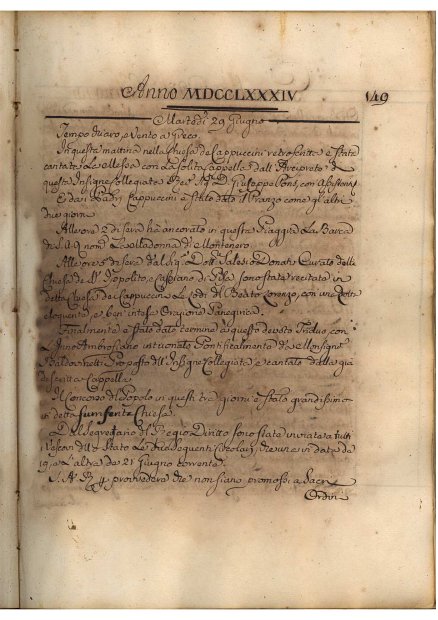 Anno MDCCLXXXIV
149
Martedì 29 Giugno
Tempo vario, e Vento a Greco.
In questa mattina nella Chiesa de Cappuccini è stata
cantata La Messa con La solita Cappella dall' Arciprete di
questa Insigne Collegiata Sig. D. Giuseppe Pons, con
E dai Padri Cappuccini è stato dato il Pranzo come gl' altri
due giorni
Alle ore 2 di sera ha ancorato in questa Piaggia La Barca
nom. La Madonna di Montenero.
Alle ore 5 di sera dal Sig. Dott. Salesio Donati Curato della
Chiesa de Ss. Ippolito, e Cassiano di sono state recitate in
detta Chiesa de Cappuccini Le Lodi del Beato Lorenzo, con una dotta
eloquente, e ben intesa Orazione Panegirica.
Finalmente è stato dato termine a questo devoto Triduo, con
L'Inno Ambrosiano intuonato Pontificalmente da Monsignor
Baldovinetti Proposto dell' Insigne Collegiata, e cantato dalla già
descritta Cappella.
Il Concorso di Popolo in questi tre giorni è stato grandissimo
in detta Chiesa.
Dal Segretario del Regio Diritto sono state inviate a tutti
i Vescovi dello Stato Le due seguenti Circolari, che una in data de
19, e L'altra de 21 Giugno corrente.
S. A. R. provvedere che non siano promossi a Sacri
Ordini